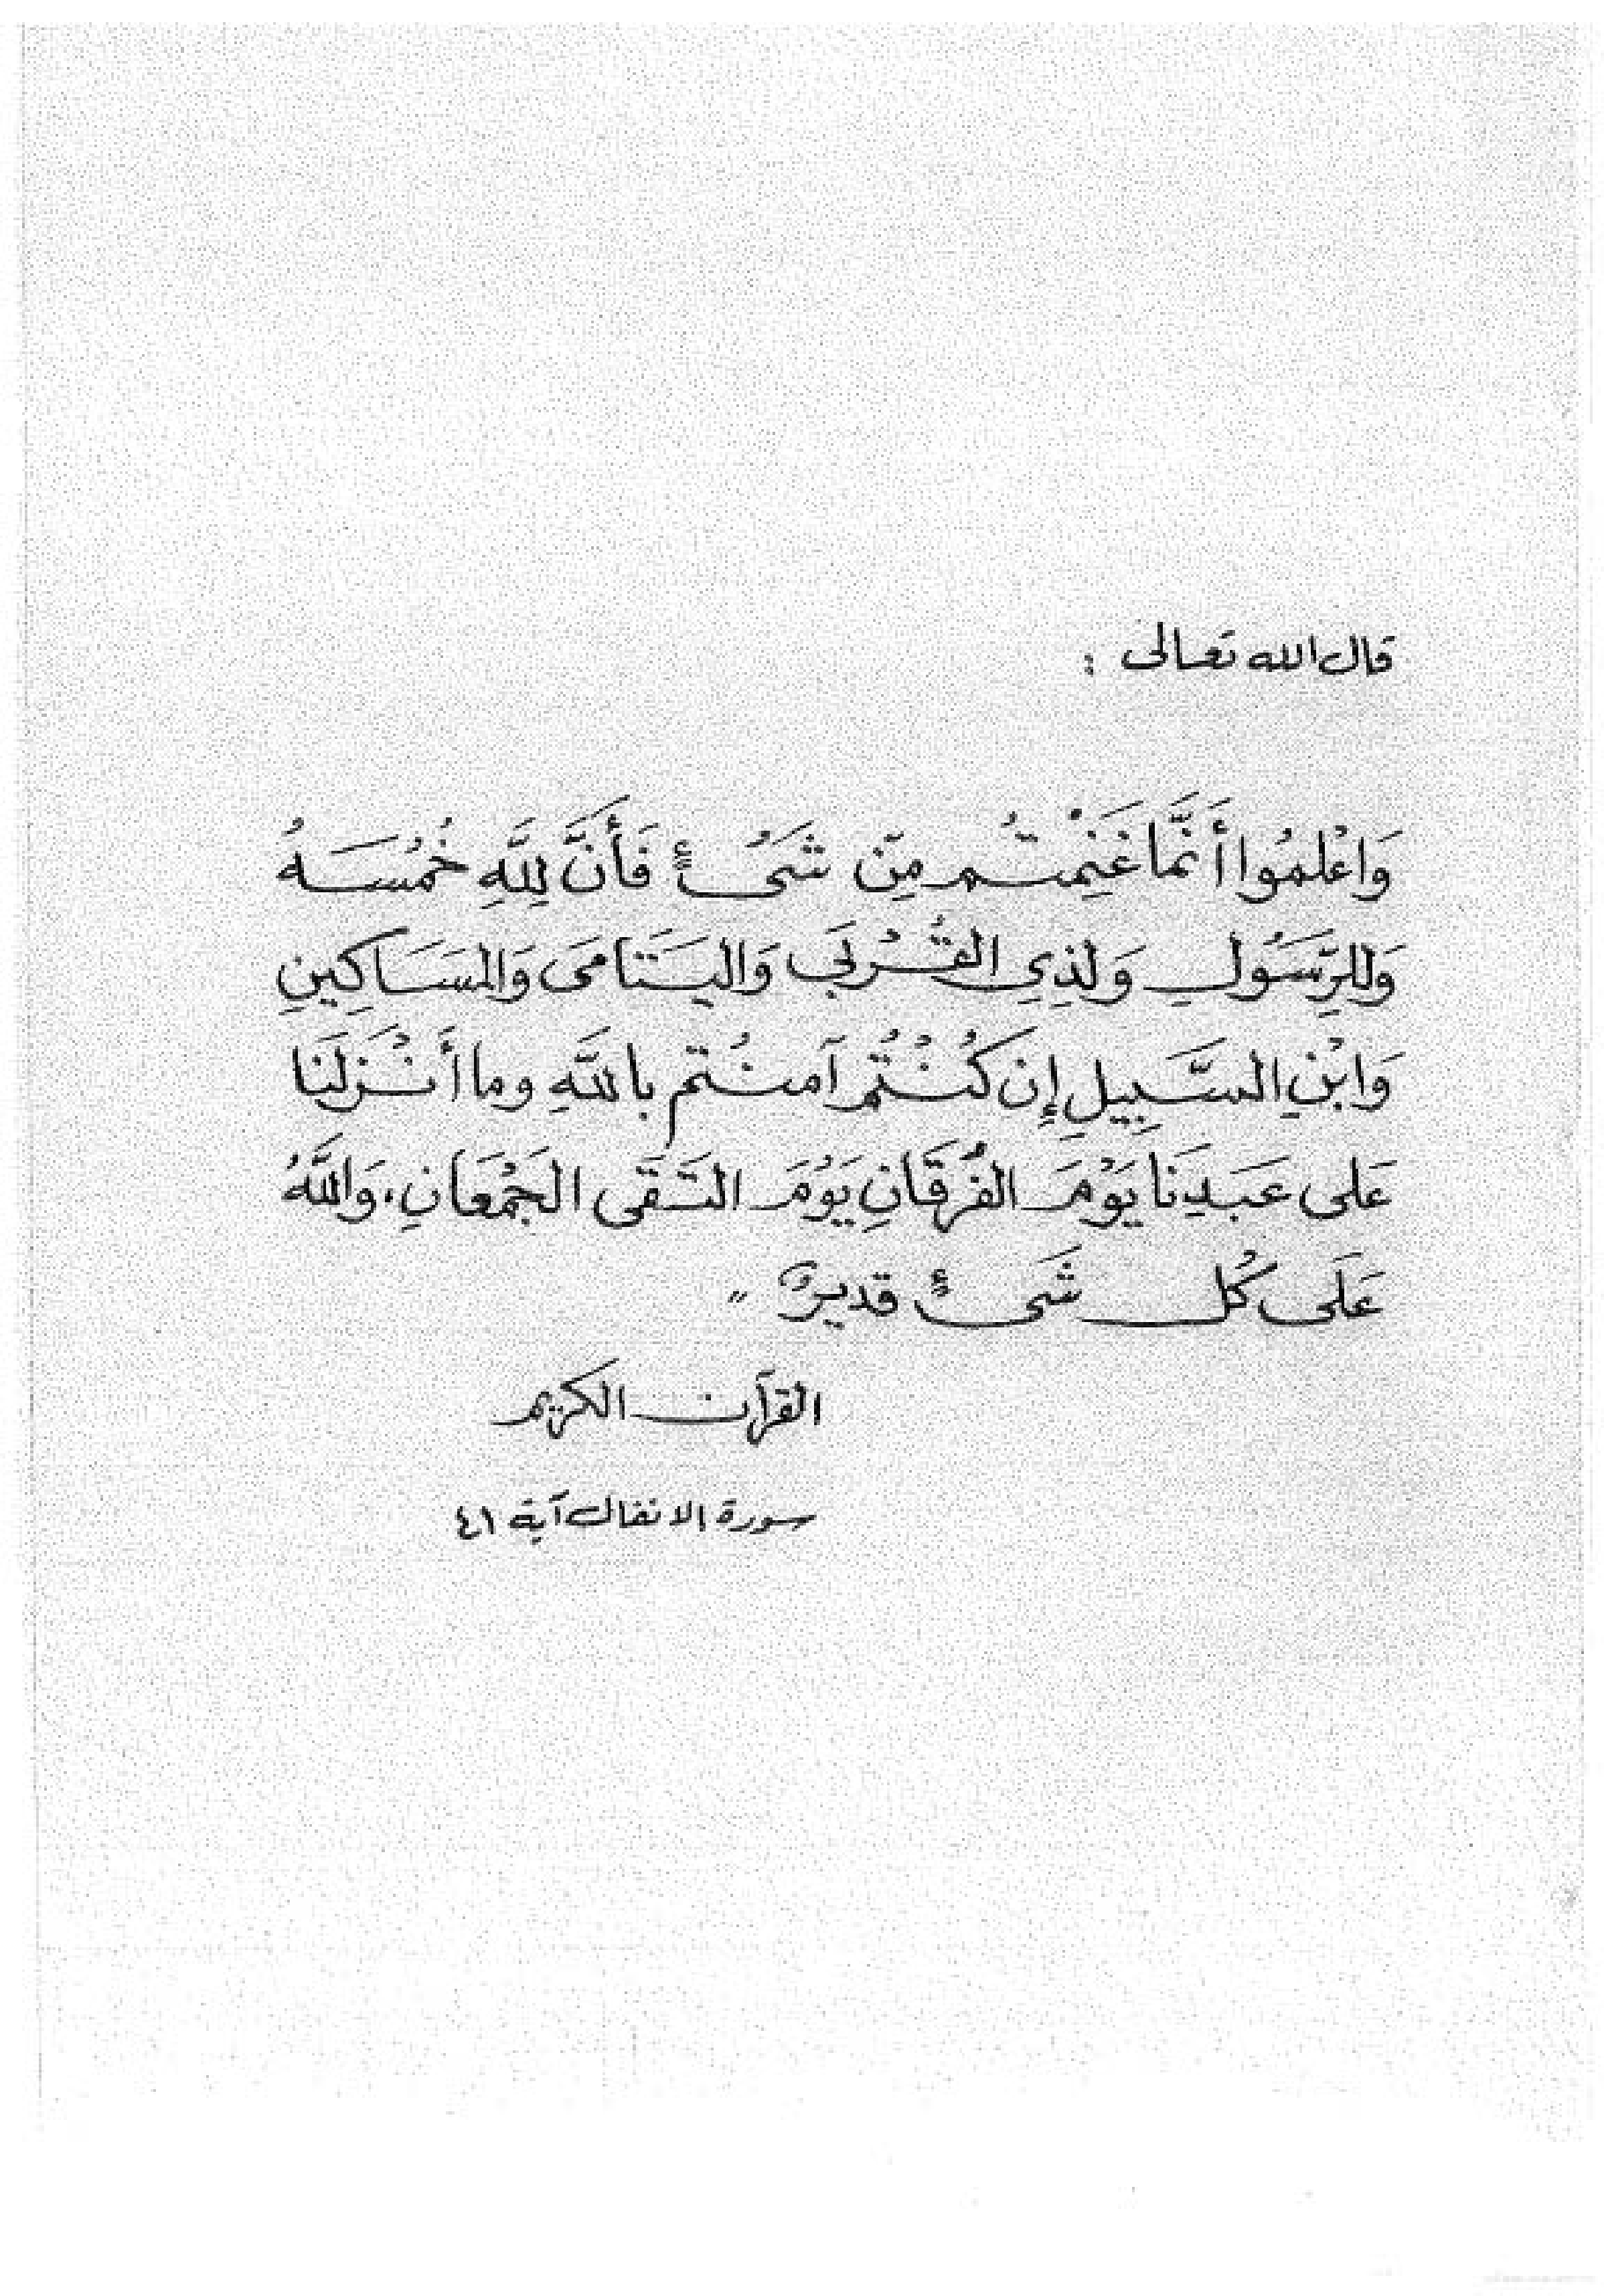 قال الله تعالى :
وَاعْلمُوا أَنَّمَا غَنِمْتُم مِنّ شَىْءٍ فَأَنَّ لِلَّهِ خُمُسَهُ
وَلِلرَّسُولِ وَلذِي القُرْبَى وَاليَتَامَى وَالمسَاكِينِ
وَابْنِ السَّبِيلِ إِن كُنْتُم آمنْتُم بالله وما أَنْزَلْنَا
عَلى عَبدِنَا يَوْمَ الفُرْقَانِ يَوْمَ التَقَى الجَمْعَانِ، وَاللَّهُ
عَلَى كُل شَىءٍ قديرٌ "
القرآن الكريم
سورة الانفال آية ٤١